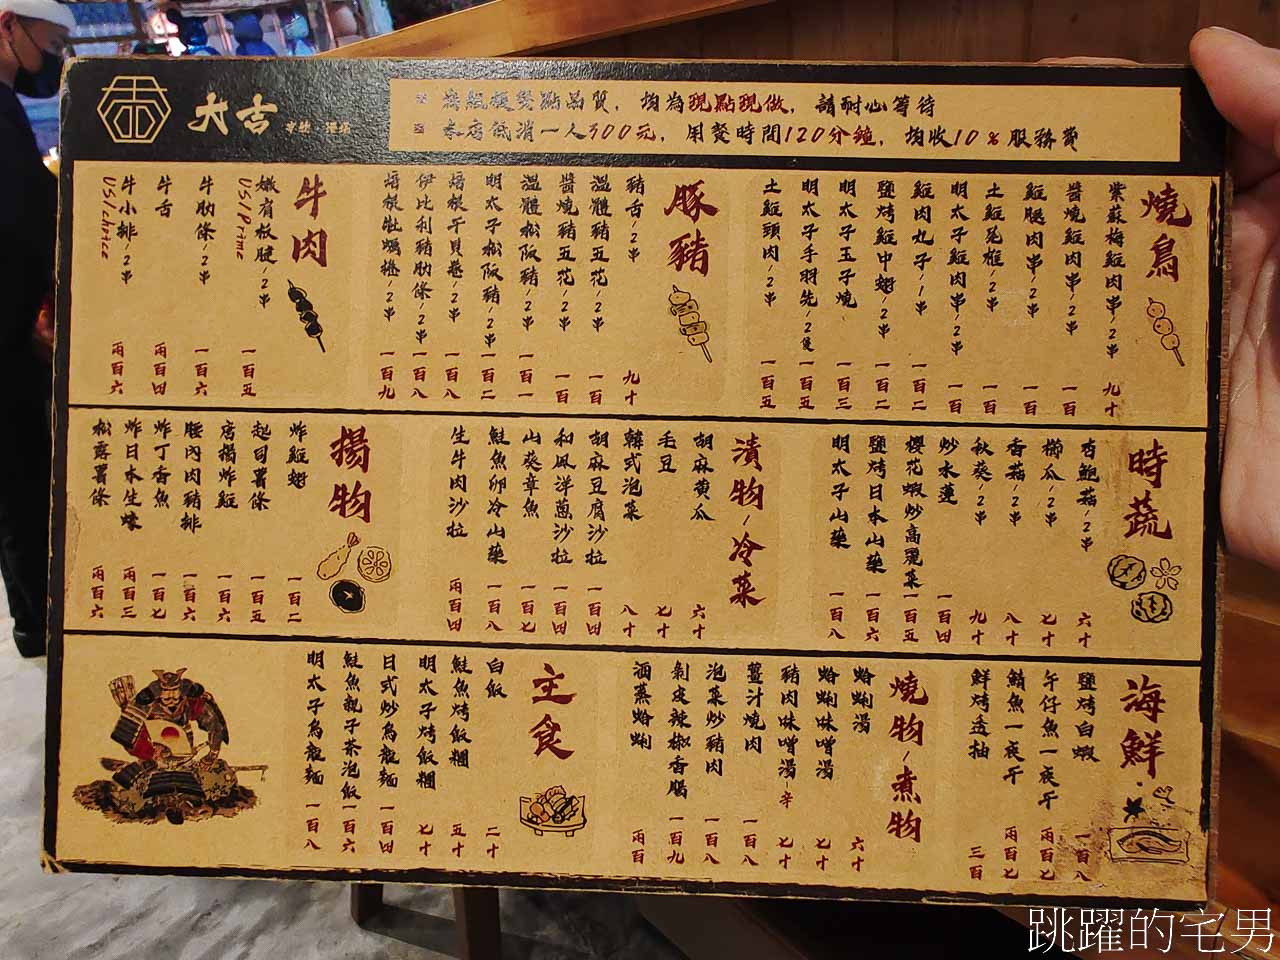 大吉
為維持餐點品質，均為現點現做，請耐心等待
本店低消一人300元，用餐時間120分鐘，均收10%服務費
燒鳥
紫蘇梅雞肉串/2串 九十
醬燒雞肉串/2串 一百
雞腿肉串/2串 一百
土雞屁椎/2串 一百
明太子雞肉串/2串 一百
雞肉丸子/1串 一百二
鹽烤雞中翅/2串 一百二
明太子玉子燒 一百三
明太子手羽先/2隻 一百五
土雞頸肉/2串 一百五
豚豬
豬舌/2串 九十
溫體豬五花/2串 一百
醬燒豬五花/2串 一百
溫體松阪豬/2串 一百一
明太子松阪豬/2串 一百二
培根干貝卷/2串 一百八
伊比利豬肋條/2串 一百八
培根牡蠣捲/2串 一百九
牛肉
嫩肩板腱/2串
US/Prime 一百五
牛肋條/2串 一百六
牛舌 兩百四
牛小排/2串
US/choice 兩百六
時蔬
杏鮑菇/2串 六十
櫛瓜/2串 七十
香菇/2串 八十
秋葵/2串 九十
炒水蓮 一百四
櫻花蝦炒高麗菜 一百五
鹽烤日本山藥 一百六
明太子山藥 一百八
漬物/冷菜
胡麻黃瓜 六十
毛豆 七十
韓式泡菜 八十
胡麻豆腐沙拉 一百四
和風洋蔥沙拉 一百四
山葵章魚 一百七
鮭魚卵冷山藥 一百八
生牛肉沙拉 兩百四
揚物
炸雞翅 一百二
起司薯條 一百五
唐揚炸雞 一百六
腰內肉豬排 一百六
炸丁香魚 一百七
炸日本生蠔 兩百三
松露薯條 兩百六
海鮮
鹽烤白蝦 一百八
午仔魚一夜干 兩百七
鯖魚一夜干 兩百七
鮮烤透抽 三百
燒物/煮物
蛤蜊湯 六十
蛤蜊味噌湯 七十
豬肉味噌湯/辛 七十
薑汁燒肉 一百八
泡菜炒豬肉 一百八
剝皮辣椒香腸 一百九
酒蒸蛤蜊 兩百
主食
白飯 二十
鮭魚烤飯糰 五十
明太子烤飯糰 七十
日式炒烏龍麵 一百四
鮭魚親子茶泡飯 一百六
明太子烏龍麵 一百八
跳躍的宅男